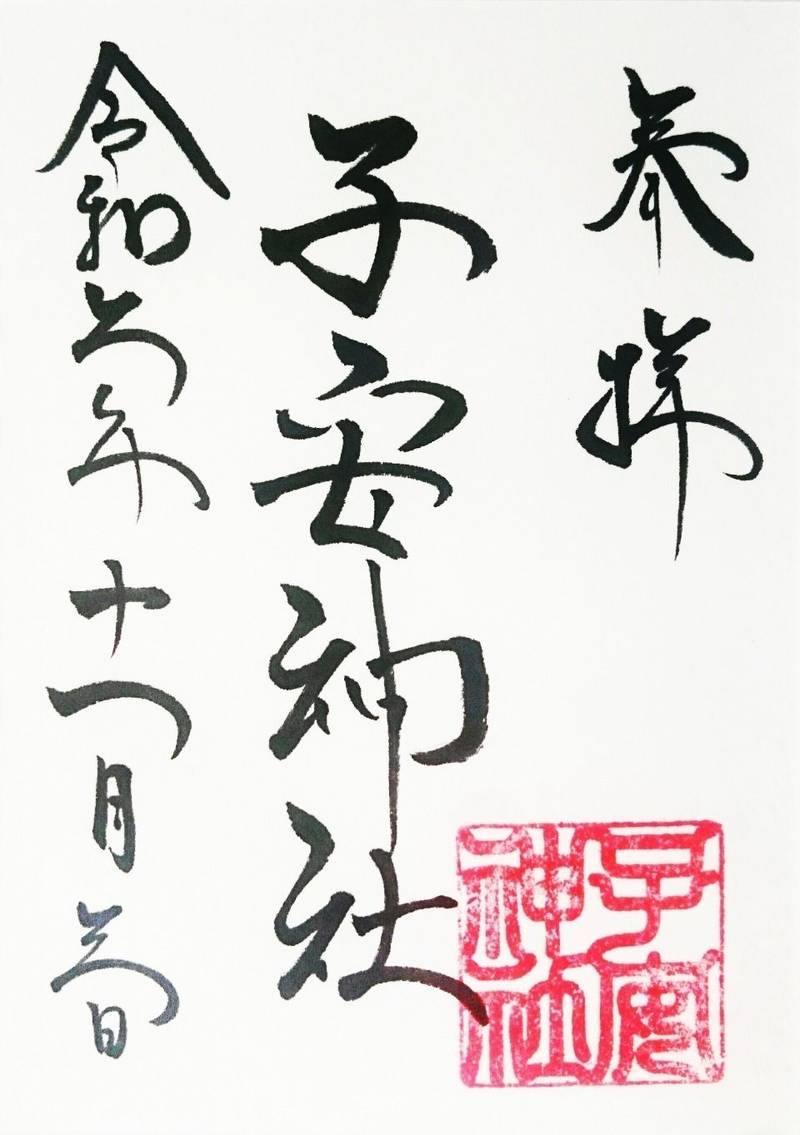 奉拝
子安神社
令和六年十一月六日
子安
神社